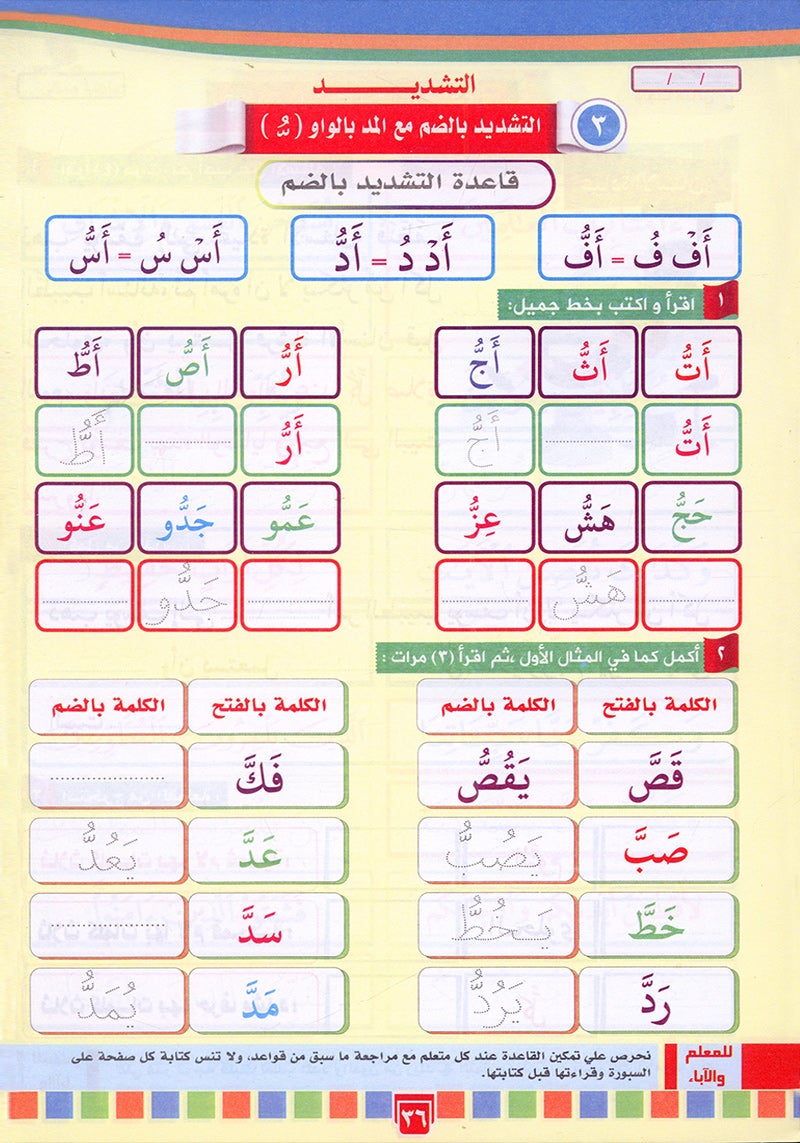 / /
التشديد
٣ التشديد بالضم مع المد بالواو ( ـُّـ )
قاعدة التشديد بالضم
أَفْ فُ = أَفُّ
أَدْ دُ = أَدُّ
أَسْ سُ = أَسُّ
١ اقرأ و اكتب بخط جميل:
أَتُّ أَثُّ أَجُّ أَرُّ أَصُّ أَطُّ
أَتُّ أَجُّ أَرُّ أَطُّ
حَجُّ هَشُّ عِزُّ عَمُّو جَدُّو عَنُّو
هَشُّ جَدُّو
٢ أكمل كما في المثال الأول ،ثم اقرأ (٣) مرات :
الكلمة بالفتح الكلمة بالضم الكلمة بالفتح الكلمة بالضم
قَصَّ يَقُصُّ فَكَّ
صَبَّ يَصُبُّ عَدَّ يَعُدُّ
خَطَّ يَخُطُّ سَدَّ
رَدَّ يَرُدُّ مَدَّ يُمَدُّ
للمعلم والآباء
نحرص علي تمكين القاعدة عند كل متعلم مع مراجعة ما سبق من قواعد، ولا تنس كتابة كل صفحة على
السبورة وقراءتها قبل كتابتها.
٣٦